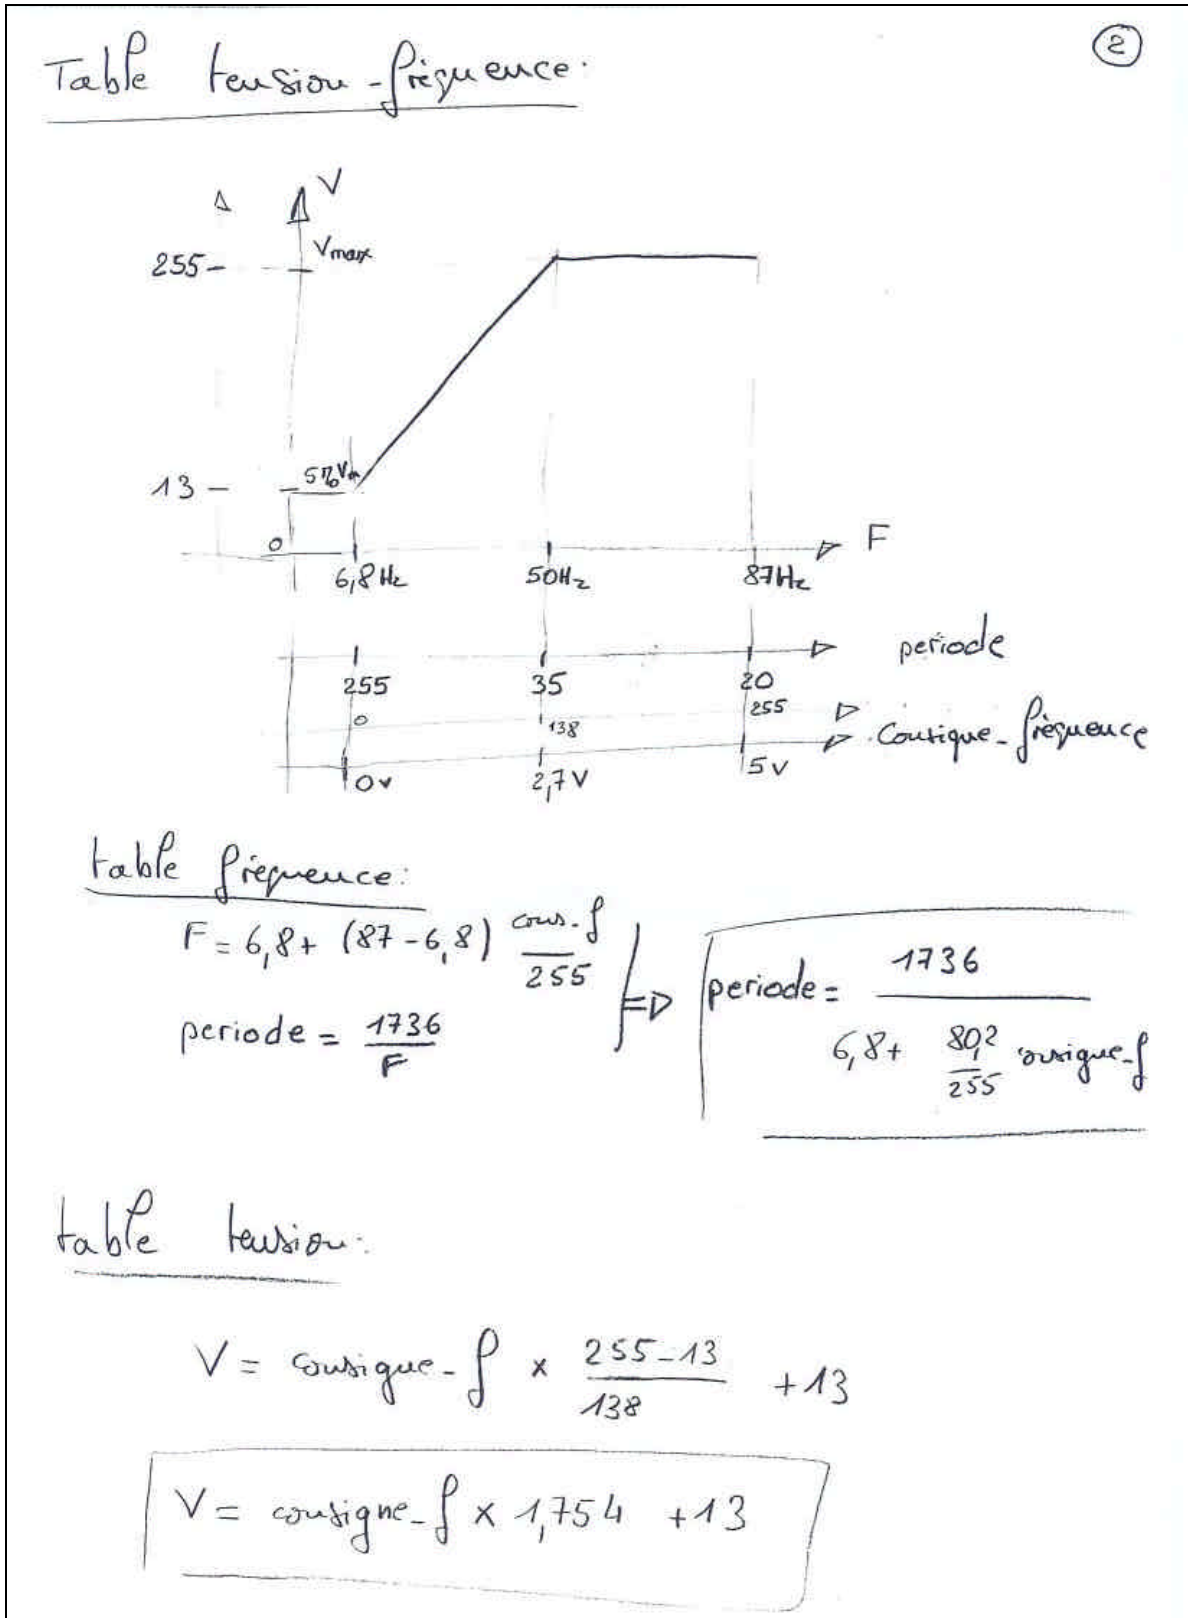 ②
Table tension-fréquence:
V
255 - Vmax
13 - 5% Vm
0
F
6,8 Hz 50Hz 87Hz
periode
255 35 20
0 138 255
consigne-fréquence
0v 2,7V 5v
table fréquence:
F = 6,8 + (87-6,8) cons-f / 255
periode = 1736 / F
=> periode = 1736 / 6,8 + 80,2 / 255 consigne-f
table tension:
V = consigne-f × 255-13 / 138 +13
V = consigne-f × 1,754 +13